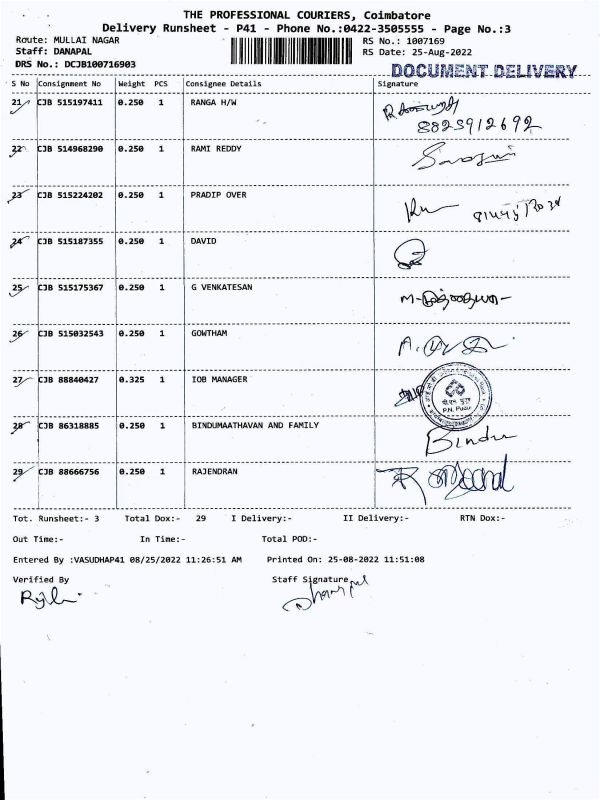 THE PROFESSIONAL COURIERS, Coimbatore
Delivery Runsheet - P41 - Phone No.:0422-3505555 - Page No.:3
Route: MULLAI NAGAR RS No.: 1007169
Staff: DANAPAL RS Date: 25-Aug-2022
DRS No.: DCJB100716903
DOCUMENT DELIVERY
S No Consignment No Weight PCS Consignee Details Signature
21 CJB 515197411 0.250 1 RANGA H/W
8825912692
22 CJB 514968290 0.250 1 RAMI REDDY
23 CJB 515224202 0.250 1 PRADIP OVER
24 CJB 515187355 0.250 1 DAVID
25 CJB 515175367 0.250 1 G VENKATESAN
26 CJB 515032543 0.250 1 GOWTHAM
27 CJB 88840427 0.325 1 IOB MANAGER
P.N. Pudur
28 CJB 86318885 0.250 1 BINDUMAATHAVAN AND FAMILY
Bindu
29 CJB 88666756 0.250 1 RAJENDRAN
Tot. Runsheet:- 3 Total Dox:- 29 I Delivery:- II Delivery:- RTN Dox:-
Out Time:- In Time:- Total POD:-
Entered By :VASUDHAP41 08/25/2022 11:26:51 AM Printed On: 25-08-2022 11:51:08
Verified By Staff Signature